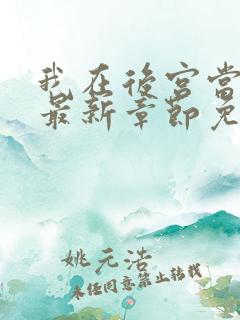 我在後宮當
最新章節免
姚元浩
未任同意禁止转载